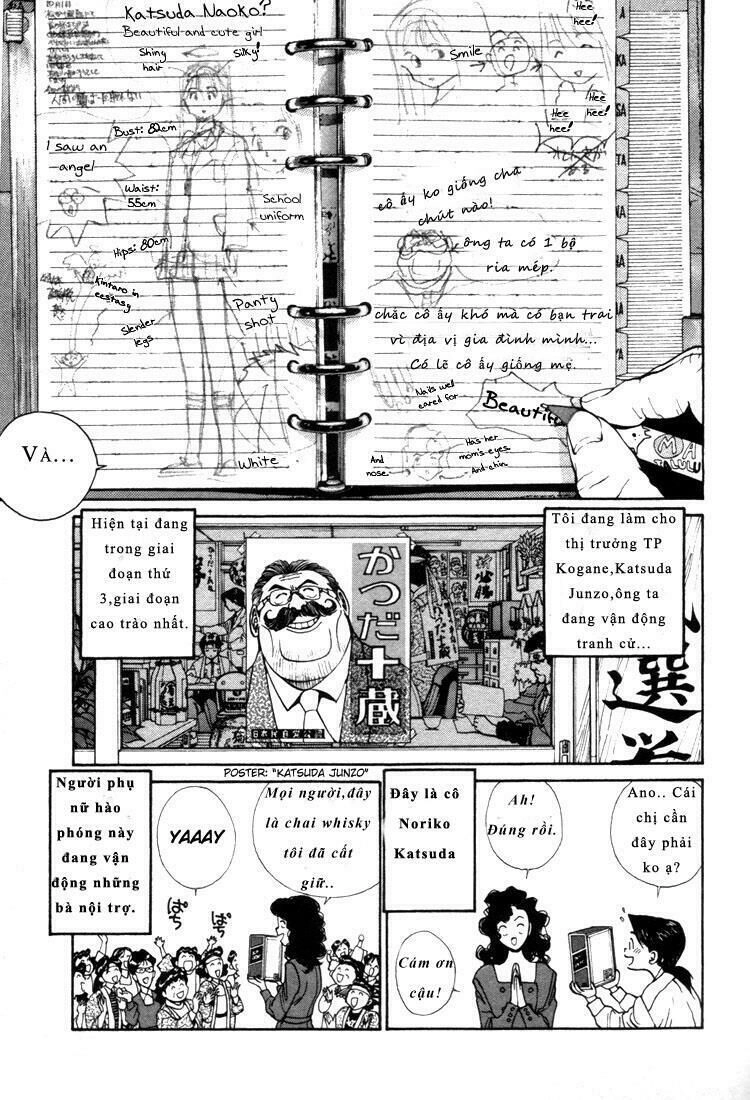 Katsuda Naoko?
Beautiful and cute girl
Shiny
hair
Silky!
I saw an
angel
School
uniform
Smile
Hee
hee!
Hee
hee!
Hee
hee!
Hee
hee!
A
KA
SA
TA
NA
cô ấy ko giống cha
chút nào!
ông ta có 1 bộ
ria mép.
chắc cô ấy khó mà có bạn trai
vì địa vị gia đình mình...
Có lẽ cô ấy giống mẹ.
Nails well
cared for
Beautifu
Has her
mom's eyes.
And chin.
And
nose.
Và...
Hiện tại đang
trong giai
đoạn thứ
3,giai đoạn
cao trào nhất.
かつだ十蔵
Tôi đang làm cho
thị trưởng TP
Kogane,Katsuda
Junzo,ông ta
đang vận động
tranh cử...
選挙
POSTER: "KATSUDA JUNZO"
Người phụ
nữ hào
phóng này
đang vận
động những
bà nội trợ.
YAAAY
Mọi người,đây
là chai whisky
tôi đã cất
giữ..
ぱち
ぱち
Đây là cô
Noriko
Katsuda
Ah!
Đúng rồi.
Ano.. Cái
chị cần
đây phải
ko ạ?
Cám ơn
cậu!